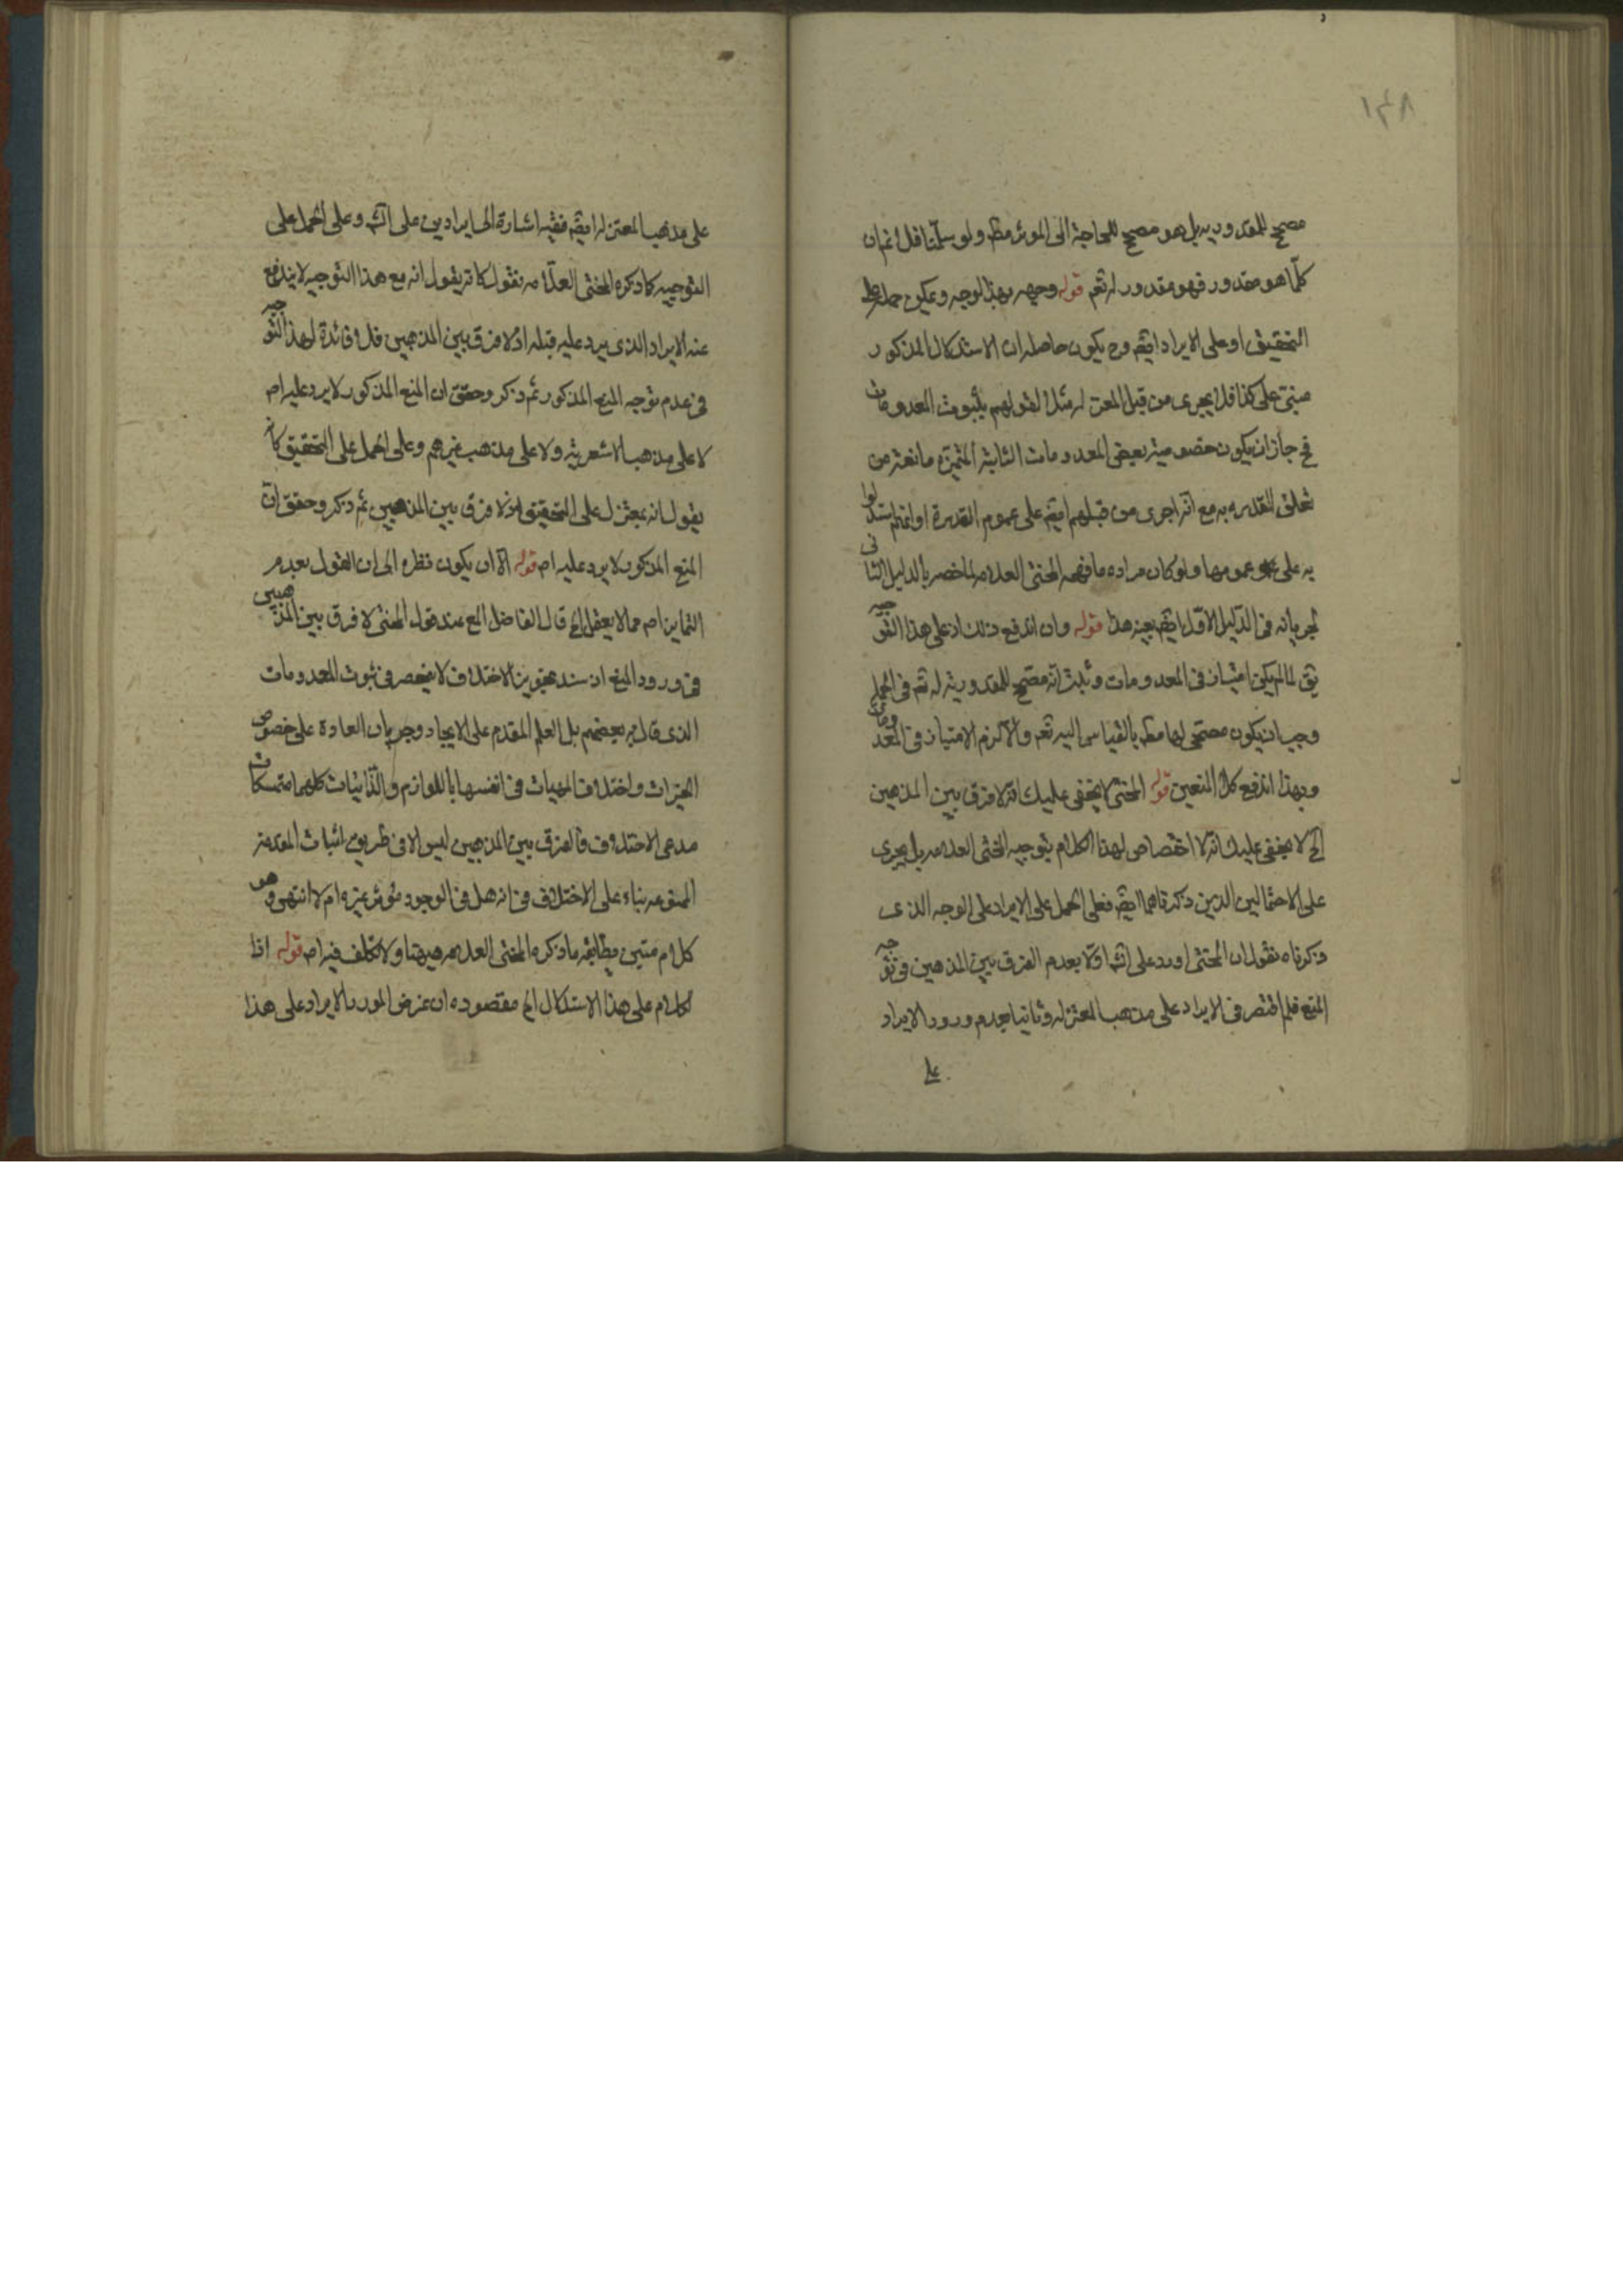 ١٣٨
مصحح للمقدورية بل هو مصحح للحاجة الى الموثر مط ولو سلمنا فلا نم ان
كلما هو مقدور فهو مقدور له تعم قوله وجهه بهذا الوجه ويمكن حمله على
التحقيق او على الايراد ايضم وح يكون حاصله ان الاستدلال المذكور
مبنى على كذا فلا يجرى من قبل المعتزلة لقولهم بثبوت المعدومات
فح جاز ان يكون خصوصية بعض المعدومات الثابتة المتميزة مانعة من
تعلق القدره به مع انه اجرى من قبلهم ايضم على عموم القدرة او انهم استدلوا
به على عمومها ولو كان مراده ما فهمه المحشى العلامه لما خص بالدليل الثانى
لجريانه فى الدليل الاول ايضم بعينه هذا قوله وان اندفع ذلك اذ على هذا التوجيه
يق لما لم يكن امتياز فى المعدومات وثبت انه مصحح للمقدورية له تعم فى الجملة
وجب ان يكون مصححا لها مط بالقياس اليه تعم والا لزم الامتياز فى المعدومات
وبهذا اندفع كلا المنعين قوله المحشى لا يخفى عليك انه لا فرق بين المذهبين
الخ لا يخفى عليك انه لا اختصاص لهذا الكلام بتوجيه المحشى العلامه بل يجرى
على الاحتمالين الذين ذكرناهما ايضم فعلى الحمل على الايراد على الوجه الذى
ذكرناه نقول ان المحشى اورد على الش اولا بعدم الفرق بين المذهبين فى توجه
المنع فلم اقتصر فى الايراد على مذهب المعتزله وثانيا بعدم ورود الايراد
على
على مذهب المعتزلة ايضم ففيه اشارة الى ايرادين على الش وعلى الحمل على
التوجيه كما ذكره المحشى العلامه نقول كانه يقول انه مع هذا التوجيه لا يندفع
عنه الايراد الذى يرد عليه قبله اذ لا فرق بين المذهبين فلا فائدة لهذا التوجيه
فى عدم توجه المنع المذكور ثم ذكر وحقق ان المنع المذكور لا يرد عليه اصم
لا على مذهب الاشعرية ولا على مذهب غيرهم وعلى الحمل على التحقيق كانه
يقول انه بمعزل على التحقيق اذ لا فرق بين المذهبين ثم ذكر وحقق ان
المنع المذكور لا يرد عليه اصم قوله الا ان يكون نظره الى ان القول بعدم
التمايز اصم مما لا يعقل الخ قال الفاضل المع عند قول المحشى لا فرق بين المذهبين
فى ورود المنع ان سند تجويز الاختلاف لا ينحصر فى ثبوت المعدومات
الذى قال به بعضهم بل العلم المقدم على الايجاد وجريان العادة على خصوص
الخيرات واختلاف المهيات فى انفسها باللوازم والذاتيات كلها متمسكات
مدعى الاختلاف فالفرق بين المذهبين ليس الا فى طريق اثبات المقدمة
الممنوعه بناء على الاختلاف فى انه هل فى الوجود موثر غيره ام لا انتهى وهو
كلام متين يطابقه ما ذكره المحشى العلامه هيهنا ولا تكلف فيه اصم قوله اذا
الكلام على هذا الاستدلال الخ مقصوده ان غرض المورد بالايراد على هذا